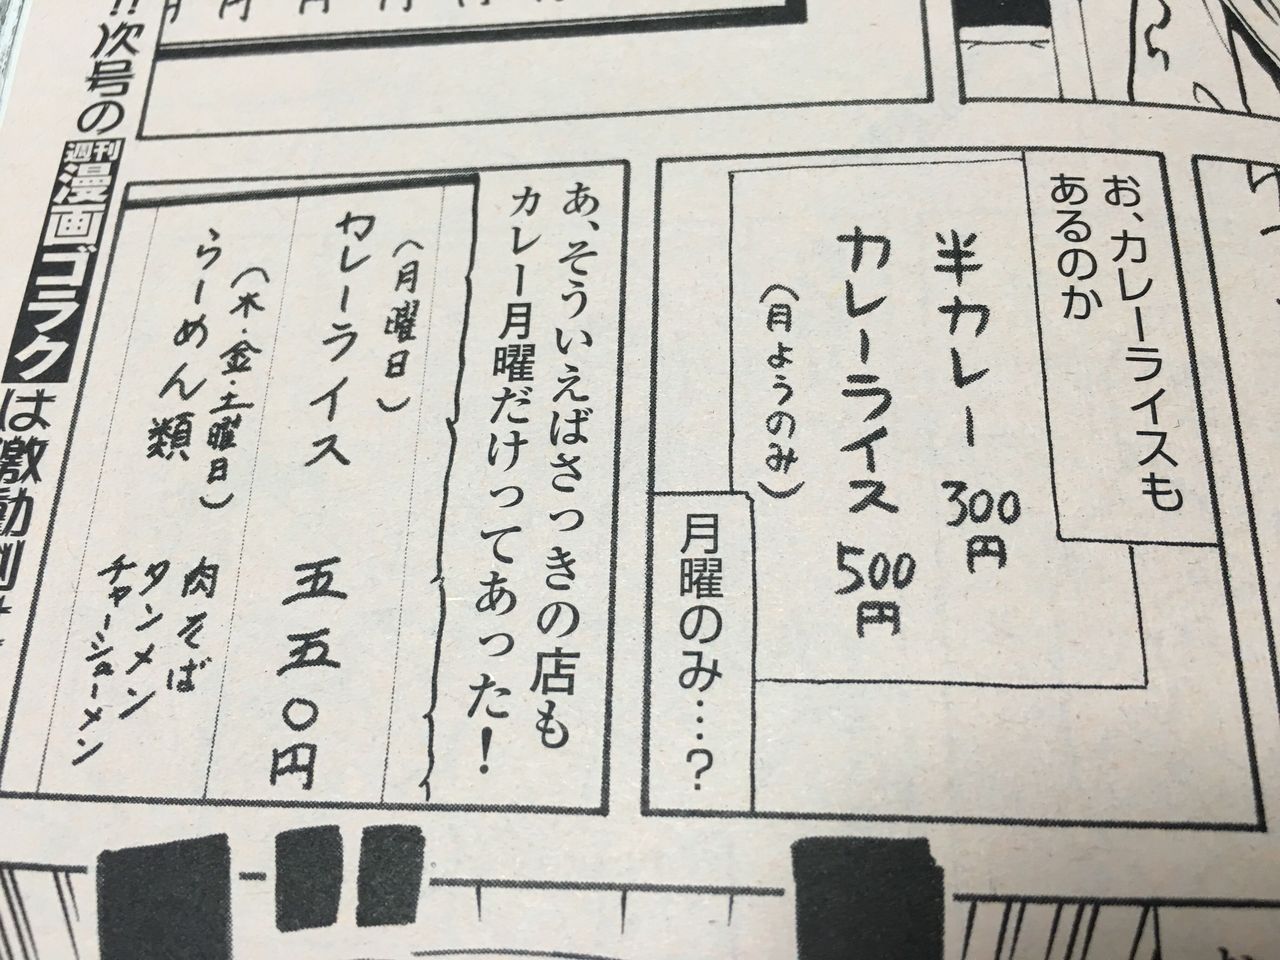 円 円 円 円 円
お、カレーライスも
あるのか
半カレー 300円
カレーライス 500円
(月ようのみ)
月曜のみ…?
あ、そういえばさっきの店も
カレー月曜だけってあった!
(月曜日)
カレーライス 五五〇円
(木・金・土曜日)
らーめん類 肉そば
タンメン
チャーシューメン
!!次号の週刊漫画ゴラクは激動